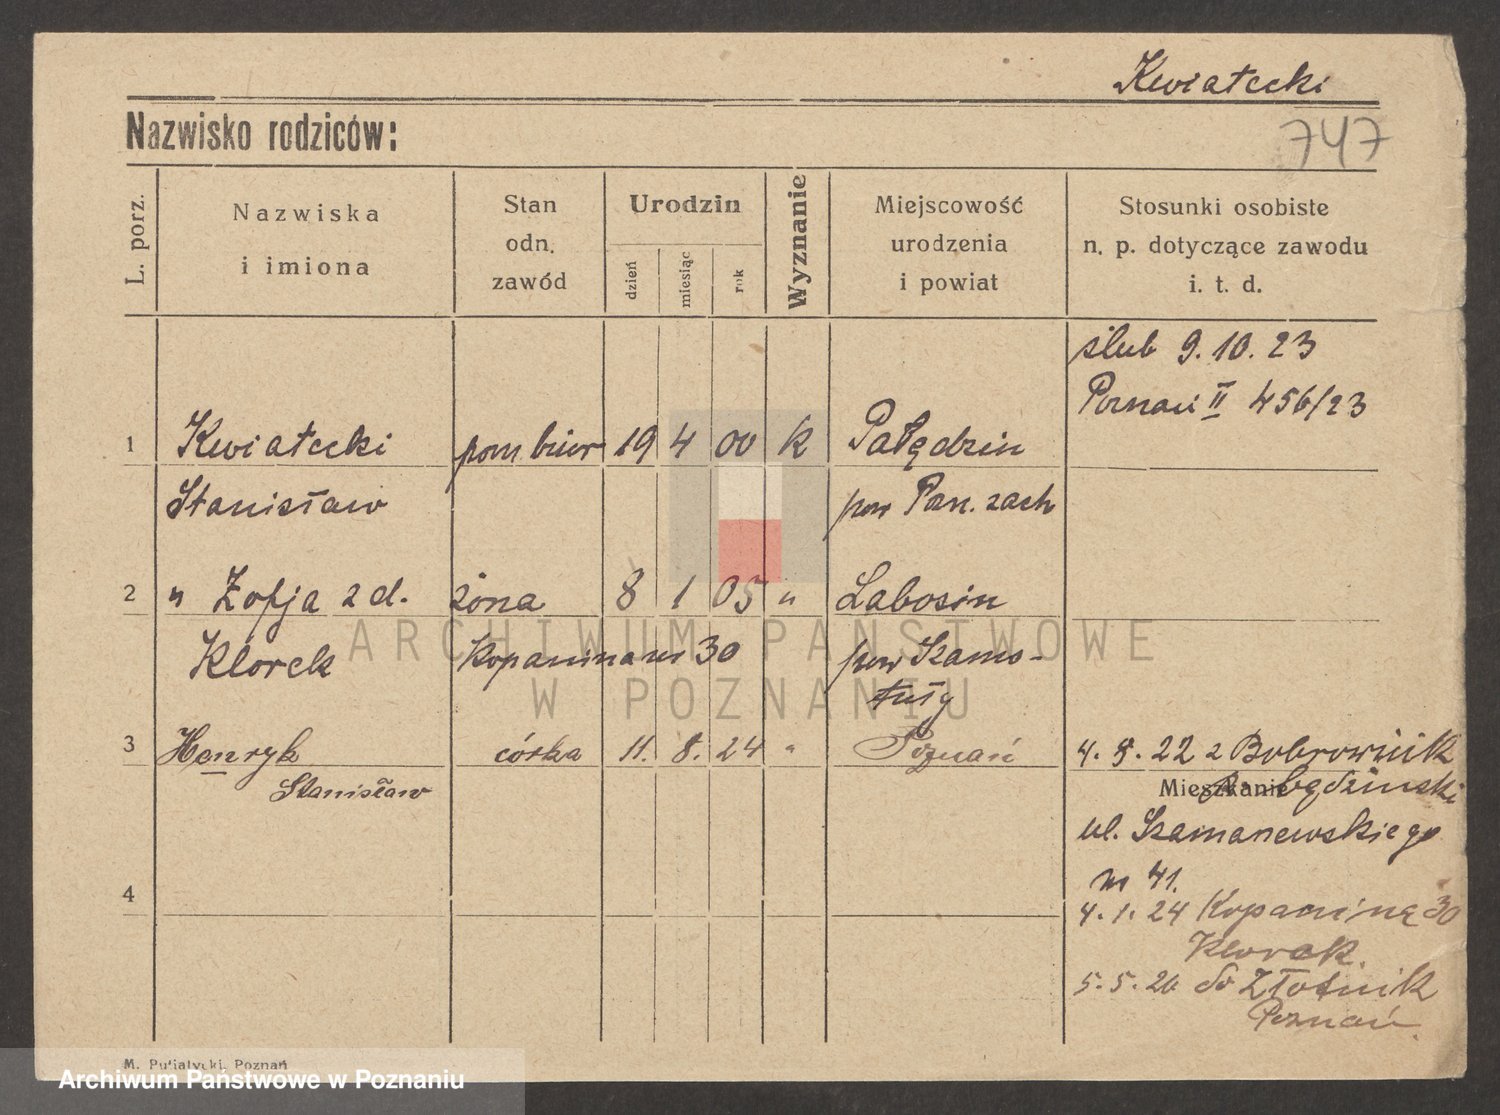 Kwiatecki
Nazwisko rodziców:
747
L. porz.
Nazwiska
i imiona
Stan
odn.
zawód
Urodzin
dzień
miesiąc
rok
Wyznanie
Miejscowość
urodzenia
i powiat
Stosunki osobiste
n. p. dotyczące zawodu
i. t. d.
ślub 9.10.23
Poznań II 456/23
1 Kwiatecki pom. biur 19 4 00 k Pałędzin
Stanisław pow Pozn. zach
2 " Zofja z d. żona 8 1 05 " Labosin
Klorek Kopanina nr 30 pow Szamo-
tuły
3 Henryk córka 11. 8. 24 " Poznań
Stanisław
4. 8. 22 z Bobrownik
Mieszkanie
ul. Szamarzewskiego
m 41.
4
4.1.24 Kopanina 30
Klorek.
5.5.26 do Złotnik
Poznań
ARCHIWUM PAŃSTWOWE
W POZNANIU
M. Putiatycki, Poznań
Archiwum Państwowe w Poznaniu